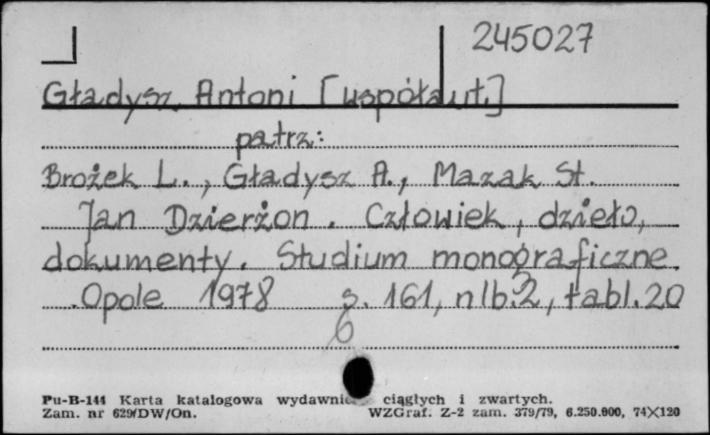 245027
Gładysz Antoni [współaut.]
patrz:
Brożek L., Gładysz A., Mazak St.
Jan Dzierżon. Człowiek, dzieło,
dokumenty. Studium monograficzne.
Opole 1978 s. 161, nlb. 2, tabl. 20
6
Pu-B-144 Karta katalogowa wydawnic ciągłych i zwartych.
Zam. nr 629/DW/On. WZGraf. Z-2 zam. 379/79, 6.250.000, 74×120